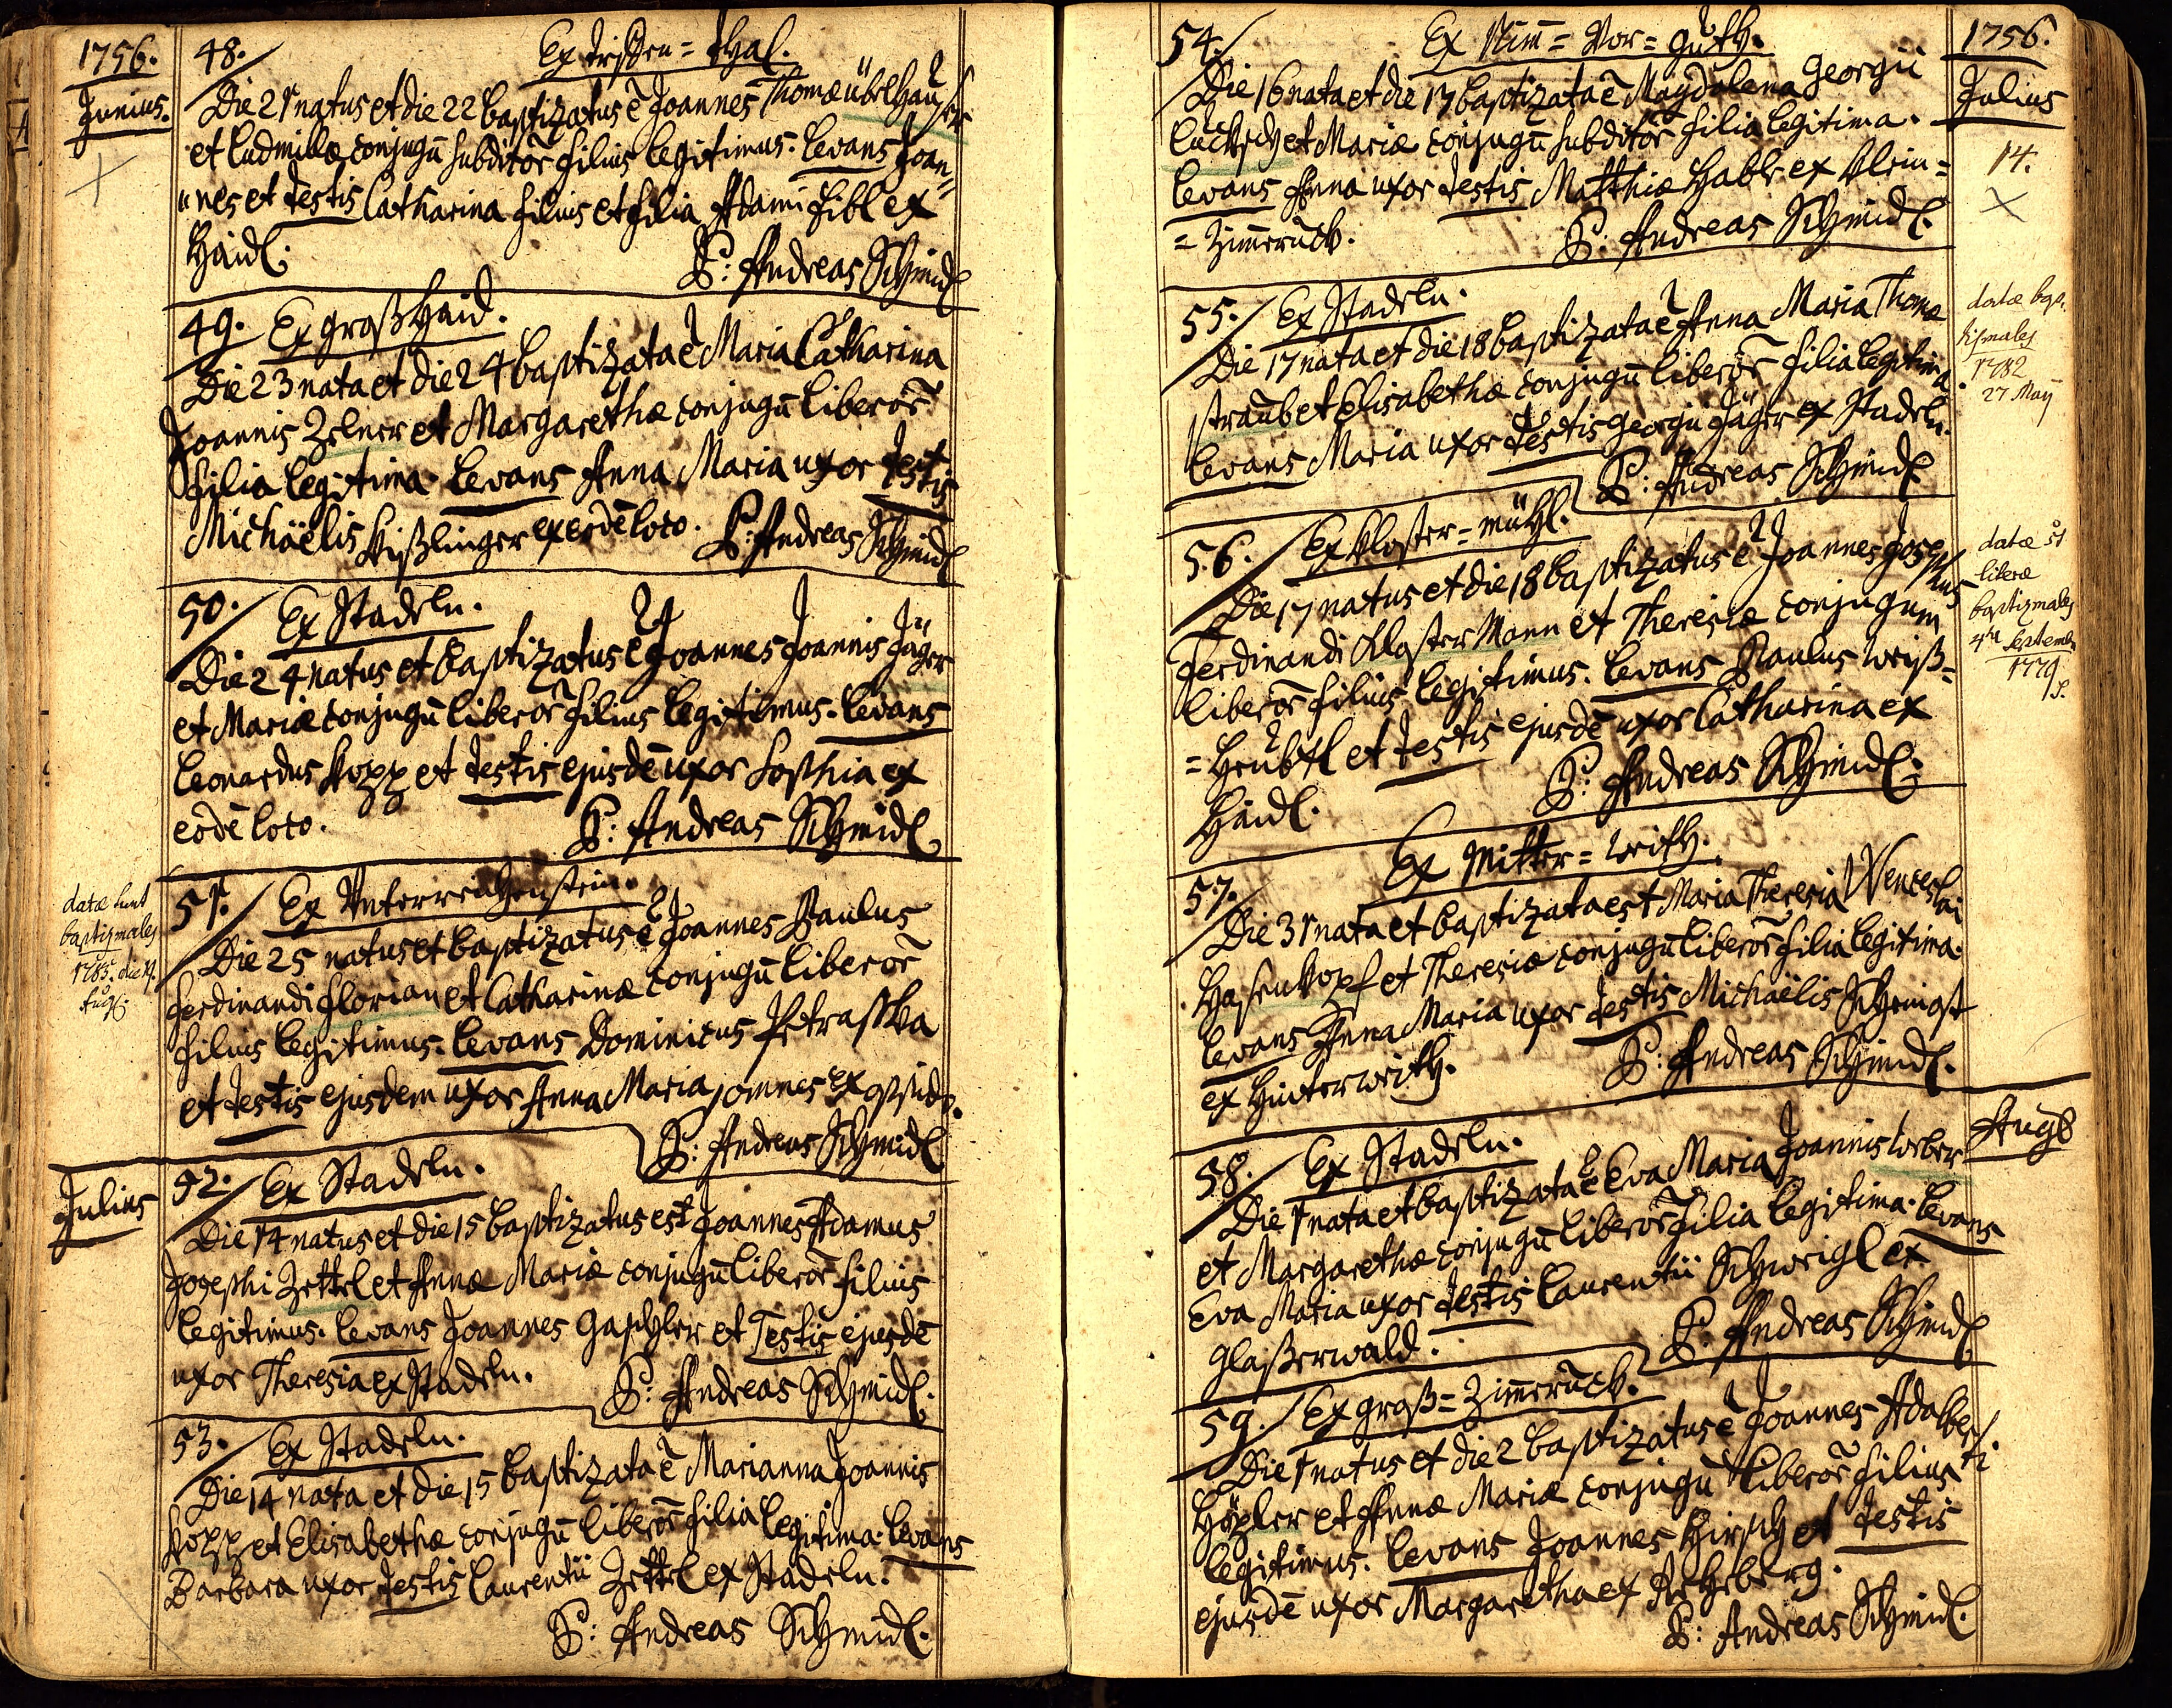 1756.
Junius.
48. Ex Tristen = thal.
Die 21 natus et die 22 baptizatus ē Joannes Thomæ übelhauser
et Ludmillæ conjugū subditōr filius legitimus. Levans Joan„
„nes et testis Catharina filius et filia Adami Fibl ex
Haidl.
P: Andreas Schmidl
49. Ex großhaid.
Die 23 nata et die 24 baptizata ē Maria Catharina
Joannis Zelner et Margarethæ conjugū liberōr
filia legitima. Levans Anna Maria uxor testis
Michäelis Kißlinger ex eodē loco. P: Andreas Schmidl
50. Ex Stadeln.
Die 24 natus et baptizatus ē Joannes Joannis Jäger
et Mariæ conjugū liberōr filius legitimus. Levans
Leonardus Kopp et testis ejusdē uxor Sophia ex
eodē loco.
P: Andreas Schmidl
datæ sunt
baptismales
1785. die 14
Aug.
51. Ex Unterreichenstein.
Die 25 natus et baptizatus ē Joannes Paulus
Ferdinandi Florian et Catharinæ conjugū liberōr
filius legitimus. Levans Dominicus Petraschka
et testis ejusdem uxor Anna Maria omnes ex
P: Andreas Schmidl
Julius
52. Ex Stadeln.
Die 14 natus et die 15 baptizatus est Joannes Adamus
Josephi Zettel et Annæ Mariæ conjugū liberōr filius
legitimus. Levans Joannes Gaschler et Testis ejusdē
uxor Theresia ex Stadeln.
P: Andreas Schmidl.
53. Ex Stadeln.
Die 14 nata et die 15 baptizata ē Marianna Joannis
Kopp et Elisabethæ conjugū liberōr filia legitima. Levans
Barbara uxor testis Laurentii Zettel ex Stadeln.
P: Andreas Schmidl.
1756.
Julius
14.
54. Ex Nim = Vor = guth.
Die 16 nata et die 17 baptizata ē Magdalena Georgii
et Mariæ conjugū subditōr filia legitima.
Levans Anna uxor testis Matthiæ Hable ex Klein =
= Zimeruck.
P: Andreas Schmidl.
datæ bap-
tismales
1782
27 Maÿ
55. Ex Stadeln.
Die 17 nata et die 18 baptizata ē Anna Maria Thomæ
straub et Elisabethæ conjugū liberōr filia legitima.
Levans Maria uxor testis Georgii Jäger ex Stadeln.
P: Andreas Schmidl
datæ st
literæ
baptizmales
4ta Septemb.
1779
56. Ex Kloster = mühl.
Die 17 natus et die 18 baptizatus ē Joannes Josephus
Ferdinandi Kloster Mann et Theresiæ conjugum
liberōr filius legitimus. Levans Paulus Weiß =
= Heubtl et testis ejusdē uxor Catharina ex
Haidl.
P: Andreas Schmidl.
57. Ex Mitter = Weith.
Die 31 nata et baptizata est Maria Theresia Wenceslai
Hasenkopf et Theresiæ conjugū liberōr filia legitima.
Levans Anna Maria uxor testis Michäelis
ex Hinterweith.
P: Andreas Schmidl.
Aug9
58. Ex Stadeln.
Die 1 nata et baptizata ē Eva Maria Joannis Weber
et Margarethæ conjugū liberōr filia legitima. Levans
Eva Maria uxor testis Laurentii Schweigl ex
glaßerwald.
P: Andreas Schmidl
59. Ex groß = Zimeruck.
Die 1 natus et die 2 baptizatus ē Joannes Adalberti
Höpler et Annæ Mariæ conjugū liberōr filius
legitimus. Levans Joannes Hirsch et testis
ejusdē uxor Margaretha ex Rehberg.
P: Andreas Schmidl.